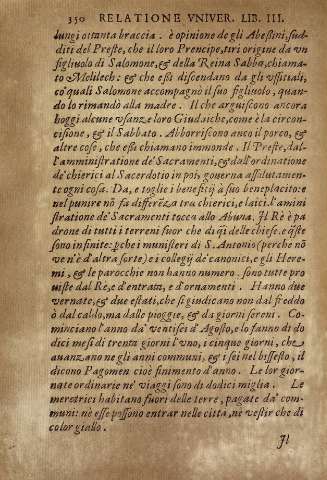 350 RELATIONE VNIVER. LIB. III.
lungi ottanta braccia. è opinione de gli Abeßini, sud-
diti del Preste, che il loro Prencipe, tiri origine da vn
figliuolo di Salomone, & della Reina Sabba, chiama-
to Melilech: & che eßi discendano da gli vffitiali,
co' quali Salomone accompagnò il suo figliuolo, quan-
do lo rimandò alla madre. Il che arguiscono ancora
hoggi alcune vsanze loro Giudaiche, come è la circon-
cisione, & il Sabbato. Abborriscono anco il porco, &
altre cose, che eßi chiamano immonde. Il Preste, dal-
l'amministratione de' Sacramenti, & dall'ordinatione
de' chierici al Sacerdotio in poi, gouerna assolutamen-
te ogni cosa. Da, e toglie i beneficij à suo beneplacito: e
nel punire nō fa differēza tra chierici, e laici. l'amini
stratione de' Sacramenti tocca allo Abuna. Il Rè è pa
drone di tutti i terreni fuor che di q̃i delle chiese. e q̃ste
sono infinite: p̱che i munisteri di S. Antonio (perche nō
ve n'è d'altra sorte) e i collegij de' canonici, e gli Here-
mi, & le parocchie non hanno numero. sono tutte pro
uiste dal Re, e d'entrata, e d'ornamenti. Hanno due
vernate, & due estati, che si giudicano non dal freddo
ò dal caldo, ma dalle pioggie, & da giorni sereni. Co-
minciano l'anno da' ventisei d'Agosto, e lo fanno di do
dici mesi di trenta giorni l'vno, i cinque giorni, che
auanzano ne gli anni communi, & i sei nel bissesto, il
dicono Pagomen cioè finimento d'anno. Le lor gior-
nate ordinarie ne' viaggi sono di dodici miglia. Le
meretrici habitano fuori delle terre, pagate da' com-
muni: nè esse possono entrar nelle città, nè vestir che di
color giallo.
Il